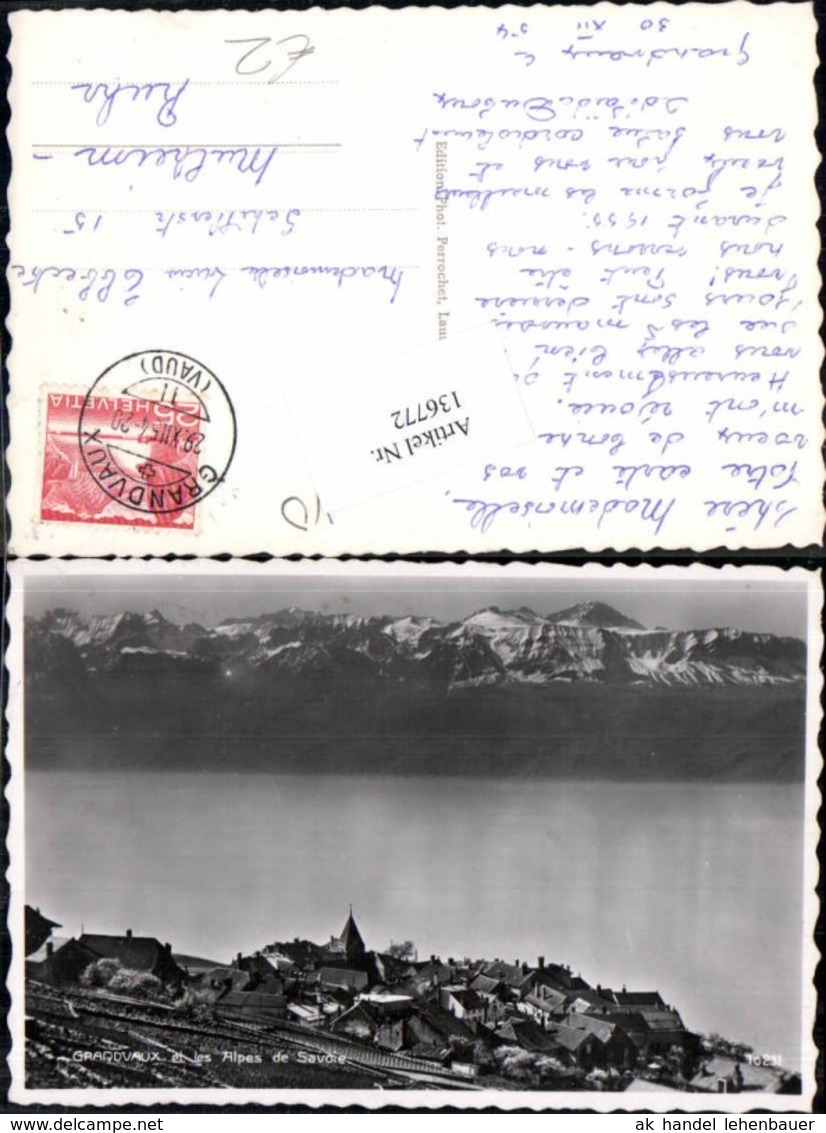 Grandvaux le
30 XII 54
Chère Mademoiselle,
Votre carte et vos
voeux de bonne
m'ont réjouie.
Heureusement
vous allez bien
sur les mauvais
jours sont derrière
vous! Peut être
nous verrons-nous
durant 1955.
Je forme les meilleurs
voeux pour vous et
vous salue cordialement
Edition Phot. Perrochet, Lau
Mademoiselle
Schillerstr 15
Mülheim-
Ruhr
€2
HELVETIA
25
GRANDVAUX
(VAUD)
29.XII.54-20
11
Artikel Nr.
136772
GRANDVAUX et les Alpes de Savoie
10291
ak handel lehenbauer